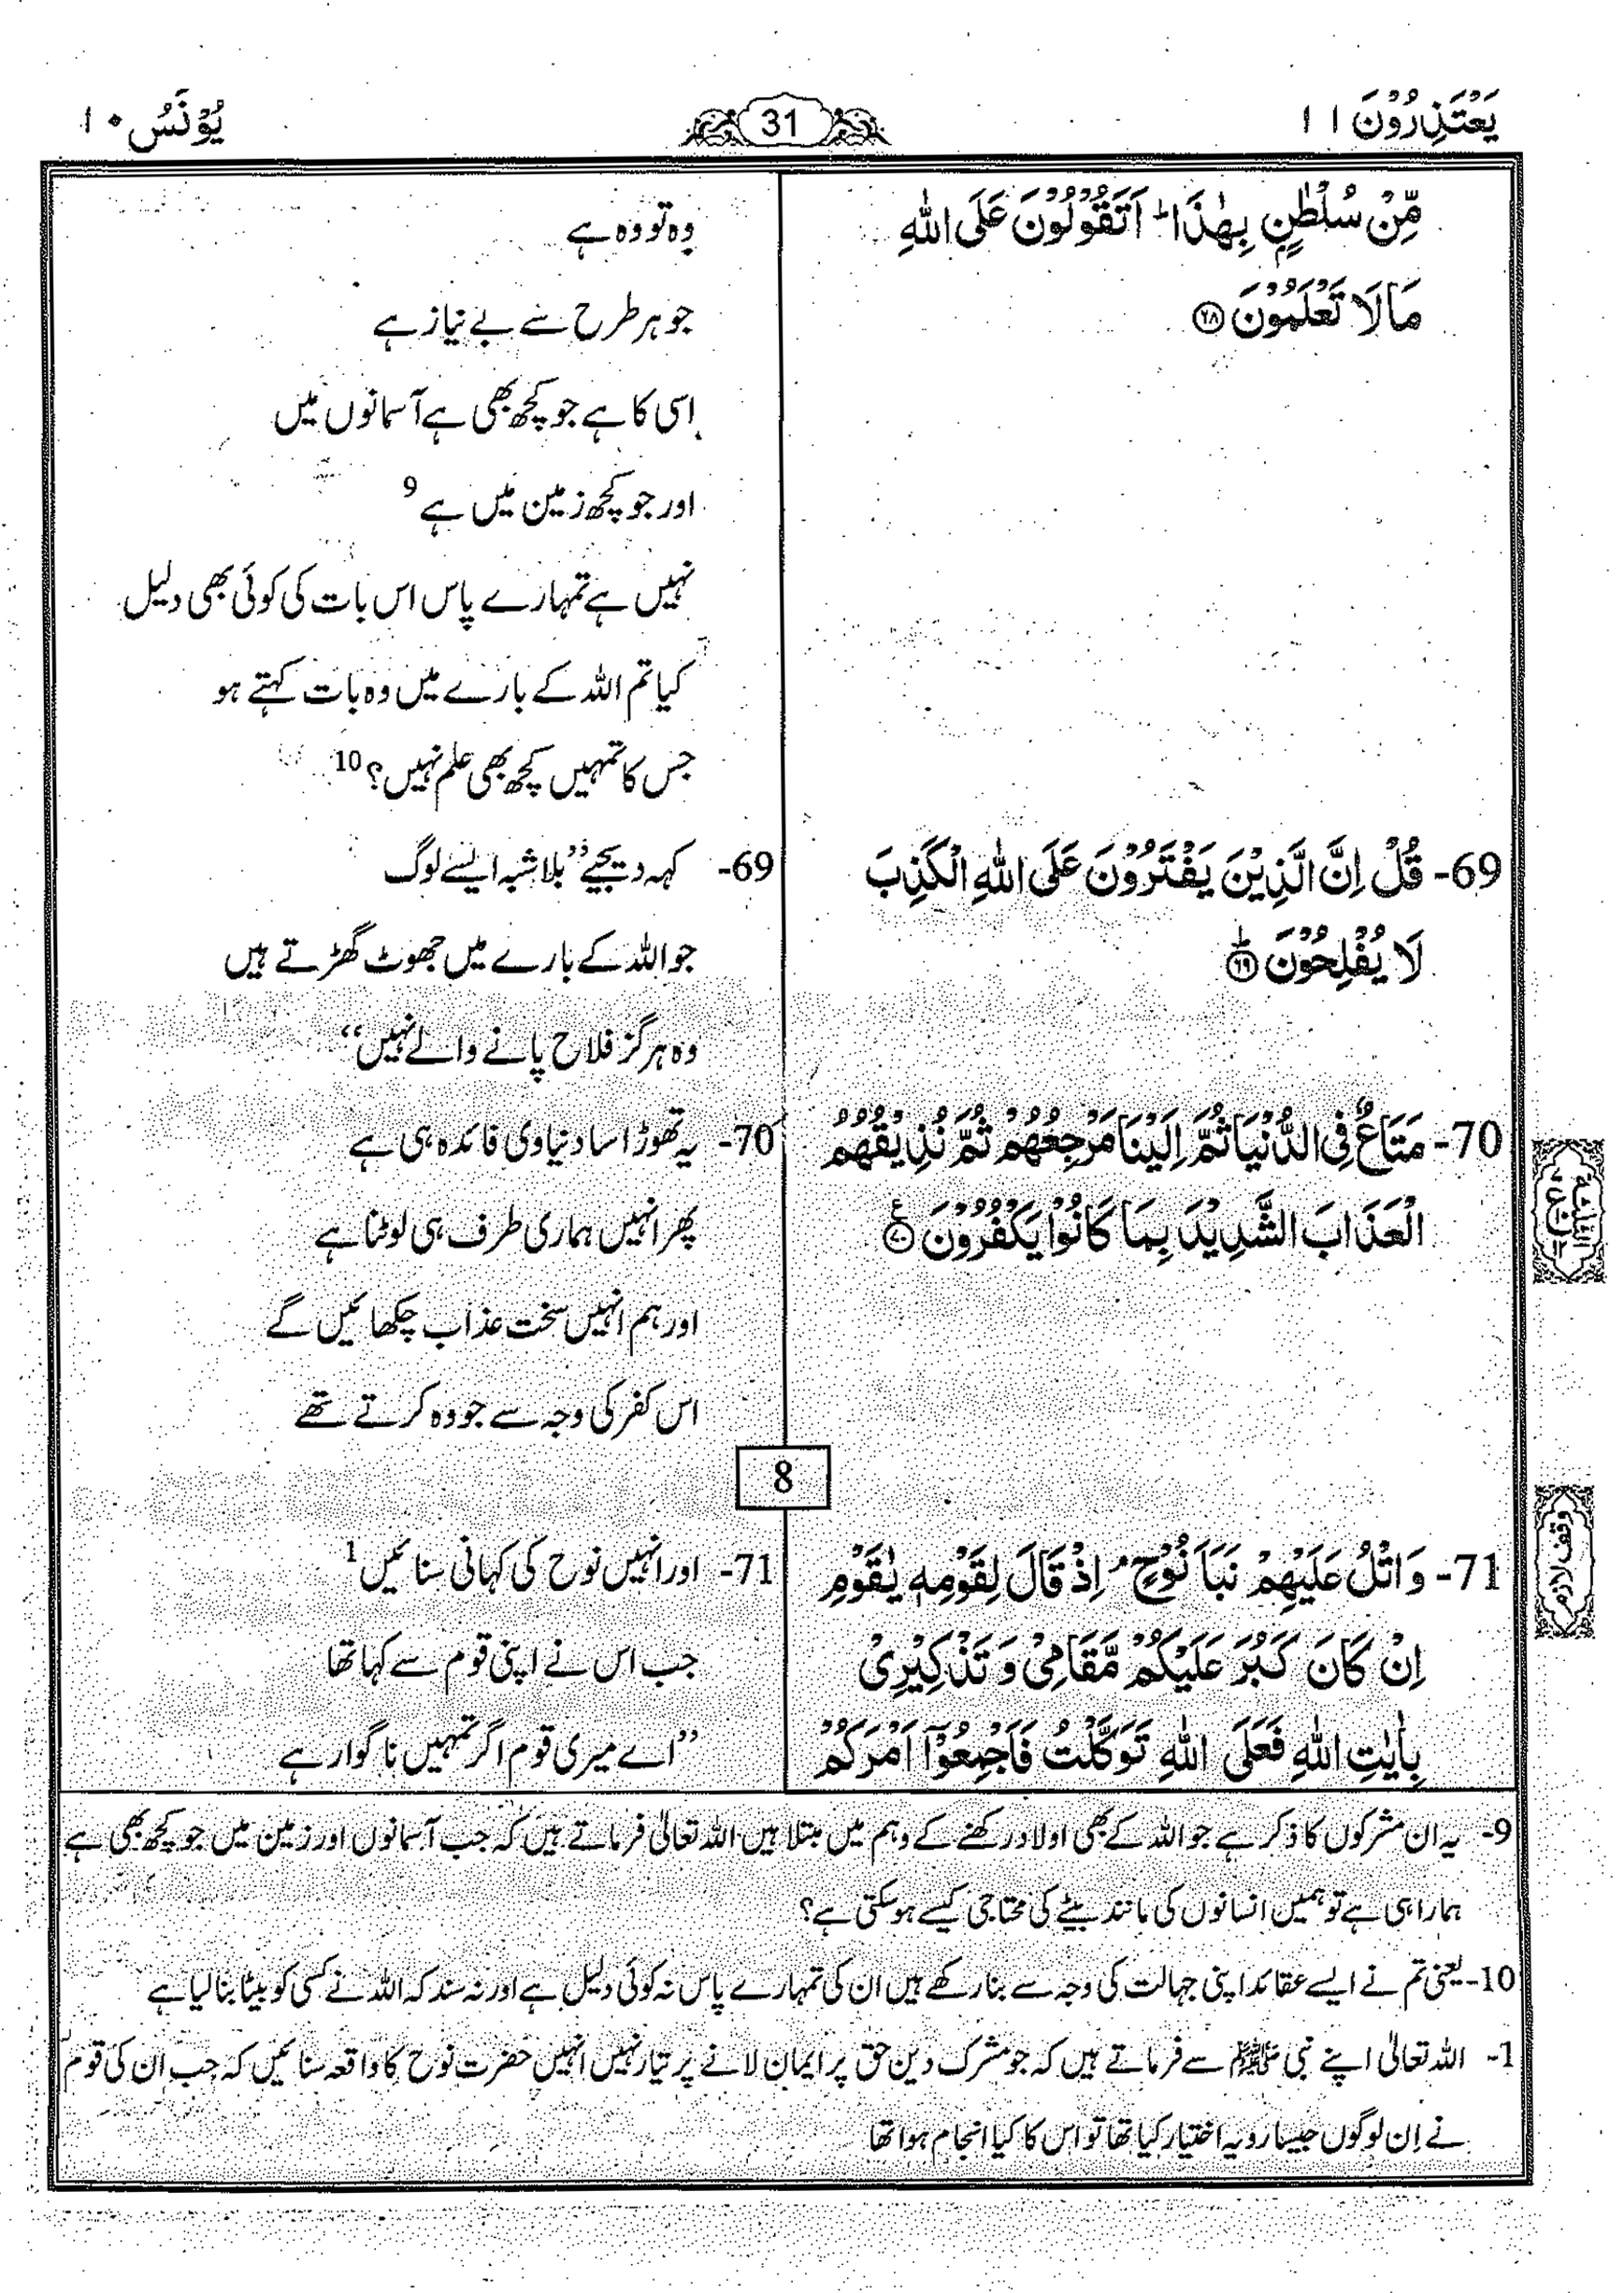 یَعْتَذِرُوْنَ ۱۱
31
یُوْنَس ۱۰
مِّنْ سُلْطٰنٍۭ بِهٰذَا ؕ اَتَقُوْلُوْنَ عَلَی اللّٰهِ
مَا لَا تَعْلَمُوْنَ ۶۸
69- قُلْ اِنَّ الَّذِیْنَ یَفْتَرُوْنَ عَلَی اللّٰهِ الْكَذِبَ
لَا یُفْلِحُوْنَ ؕ ۶۹
70- مَتَاعٌ فِی الدُّنْیَا ثُمَّ اِلَیْنَا مَرْجِعُهُمْ ثُمَّ نُذِیْقُهُمُ
الْعَذَابَ الشَّدِیْدَ بِمَا كَانُوْا یَكْفُرُوْنَ ۷۰ ع
8
71- وَ اتْلُ عَلَیْهِمْ نَبَاَ نُوْحٍ ۘ اِذْ قَالَ لِقَوْمِهٖ یٰقَوْمِ
اِنْ كَانَ كَبُرَ عَلَیْكُمْ مَّقَامِیْ وَ تَذْكِیْرِیْ
بِاٰیٰتِ اللّٰهِ فَعَلَی اللّٰهِ تَوَكَّلْتُ فَاَجْمِعُوْۤا اَمْرَكُمْ
وہ تو وہ ہے
جو ہر طرح سے بے نیاز ہے
اسی کا ہے جو کچھ بھی ہے آسمانوں میں
اور جو کچھ زمین میں ہے 9
نہیں ہے تمہارے پاس اس بات کی کوئی بھی دلیل
کیا تم اللہ کے بارے میں وہ بات کہتے ہو
جس کا تمہیں کچھ بھی علم نہیں؟ 10
69- کہہ دیجیے ”بلاشبہ ایسے لوگ
جو اللہ کے بارے میں جھوٹ گھڑتے ہیں
وہ ہرگز فلاح پانے والے نہیں“
70- یہ تھوڑا سا دنیاوی فائدہ ہی ہے
پھر انہیں ہماری طرف ہی لوٹنا ہے
اور ہم انہیں سخت عذاب چکھائیں گے
اس کفر کی وجہ سے جو وہ کرتے تھے
71- اور انہیں نوح کی کہانی سنائیں 1
جب اس نے اپنی قوم سے کہا تھا
”اے میری قوم اگر تمہیں ناگوار ہے
وقف لازم
9- یہ ان مشرکوں کا ذکر ہے جو اللہ کے بھی اولاد رکھنے کے وہم میں مبتلا ہیں اللہ تعالیٰ فرماتے ہیں کہ جب آسمانوں اور زمین میں جو کچھ بھی ہے
ہمارا ہی ہے تو ہمیں انسانوں کی مانند بیٹے کی محتاجی کیسے ہو سکتی ہے؟
10- یعنی تم نے ایسے عقائد اپنی جہالت کی وجہ سے بنا رکھے ہیں ان کی تمہارے پاس نہ کوئی دلیل ہے اور نہ سند کہ اللہ نے کسی کو بیٹا بنا لیا ہے
1- اللہ تعالیٰ اپنے نبی ﷺ سے فرماتے ہیں کہ جو مشرک دین حق پر ایمان لانے پر تیار نہیں انہیں حضرت نوح کا واقعہ سنائیں کہ جب ان کی قوم
نے اِن لوگوں جیسا رویہ اختیار کیا تھا تو اس کا کیا انجام ہوا تھا